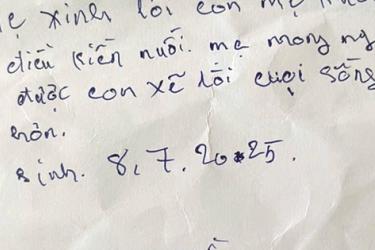 ẹ xinh lỗi con mẹ khô
điều kiện nuôi. mẹ mong ng
được con xẽ lôi cuọi sống
hơn.
sinh. 8, 7. 2025.